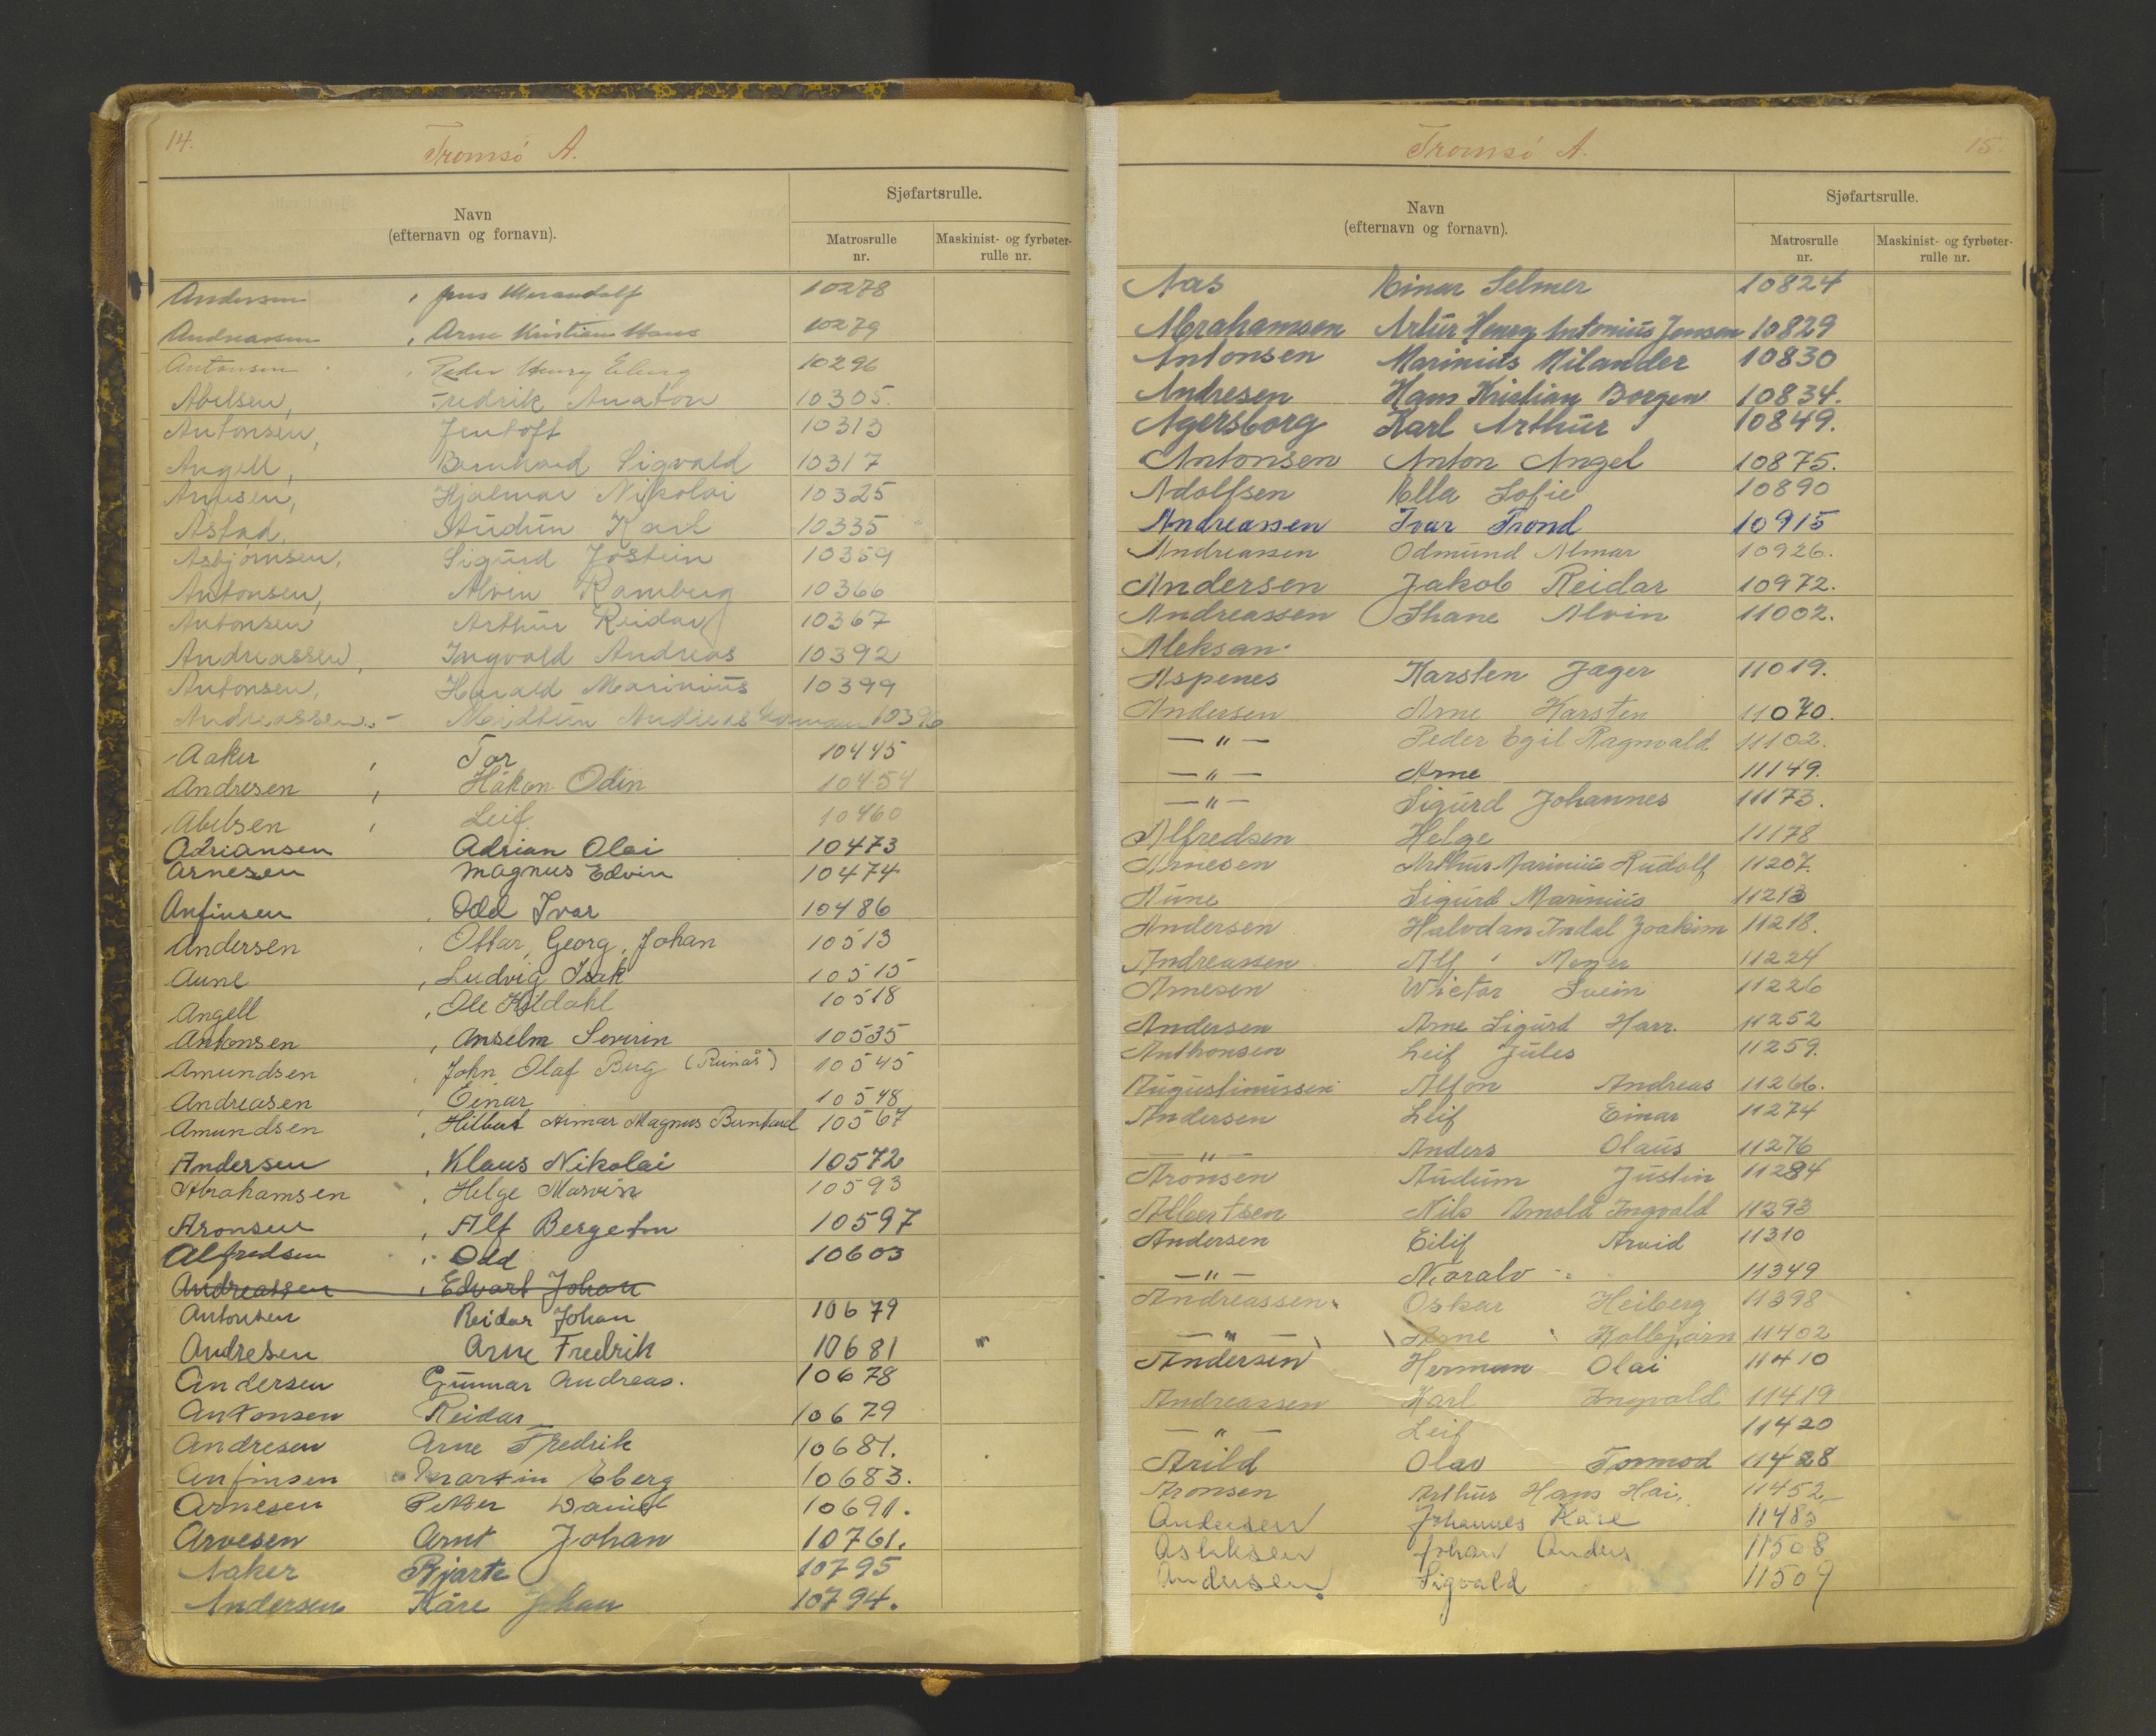 14.
Tromsö A.
Navn
(efternavn og fornavn).
Sjøfartsrulle.
Matrosrulle
nr.
Maskinist- og fyrbøter-
rulle nr.
Andersen , Jens 10278
Andreassen , Arne Kristian Hans 10279
Antonsen , Peder Henry Eberg 10296
Abelsen, Fredrik Anaton 10305.
Antonsen, Jentoft 10313
Angell, Bernhard Sigvald 10317
Arnesen, Hjalmar Nikolai 10325
Astad, Audun Karl 10335
Asbjørnsen, Sigurd Jostein 10359
Antonsen, Alvin Ramberg 10366
Antonsen Arthur Reidar 10367
Andreassen, Ingvald Andreas 10392
Antonsen, Harald Marinius 10399
Andreassen.- Meidtun Andreas 10396
Aaker , Tor 10445
Andresen , Håkon Odin 10454
Abelsen , Leif 10460
Adriansen Adrian Olai 10473
Arnesen Magnus Edvin 10474
Anfinsen , Odd Ivar 10486
Andersen , Ottar, Georg, Johan 10513
Aune , Ludvig Isak 10515
Angell , Ole Kildahl 10518
Antonsen , Anselm Severin 10535
Amundsen , John Olaf Berg (Reinås) 10545
Andreasen , Einar 10548
Amundsen , Hilbert Aimar Magnus Bernhard 10567
Andersen , Klaus Nikolai 10572
Abrahamsen , Helge Marvin 10593
Aronsen , Alf Bergeton 10597
Alfredsen , Odd 10603
Andreassen , Edvart Johan
Antonsen Reidar Johan 10679
Andresen Arne Fredrik 10681 "
Andersen Gunnar Andreas. 10678
Antonsen Reidar 10679
Andresen Arne Fredrik 10681.
Anfinsen Martin Eberg 10683.
Arnesen Petter Daniel 10691.
Arvesen Arnt Johan 10761.
Aaker Bjarte 10795
Andersen Kåre Johan 10794.
Tromsö A.
15.
Navn
(efternavn og fornavn).
Sjøfartsrulle.
Matrosrulle
nr.
Maskinist- og fyrbøter-
rulle nr.
Aas Einar Selmer 10824
Abrahamsen Artur Henry Antonius Jensen 10829
Antonsen Marinius Milander 10830
Andresen Hans Kristian Borgen 10834.
Agersborg Karl Arthur 10849.
Antonsen Anton Angel 10875.
Adolfsen Ella Sofie 10890
Andreassen Ivar Trond 10915
Andreassen Odmund Almar 10926.
Andersen Jakob Reidar 10972.
Andreassen Thane Alvin 11002.
Aleksan.
Aspenes Karsten Jager 11019.
Andersen Arne Karsten 11070.
— " — Peder Egil Ragnvald 11102.
— " — Arne 11149.
— " — Sigurd Johannes 11173.
Alfredsen Helge 11178
Arnesen Arthur Marinius Rudolf 11207.
Aune Sigurd Marinius 11213
Andersen Halvdan Indal Joakim 11218.
Andreassen Alf Meyer 11224
Arnesen Wictor Svein 11226
Andersen Arne Sigurd Harr. 11252
Anthonsen Leif Jules 11259.
Augustinussen Alfon Andreas 11266.
Andersen Leif Einar 11274
— " — Anders Olaus 11276
Aronsen Audum Justin 11284
Albertsen Nils Arnold Ingvald 11293
Andersen Eilif Arvid 11310
— " — Noralv 11349
Andreassen Oskar Heiberg 11398
— " — Arne Kolbjørn 11402
Andersen Herman Olai 11410
Andreassen Karl Ingvald 11419
— " — Leif 11420
Arild Olav Tormod 11428
Aronsen Arthur Hans Hai. 11452
Andersen Johannes Kåre 11483
Aslaksen Johan Anders 11508
Andersen Sigvald 11509